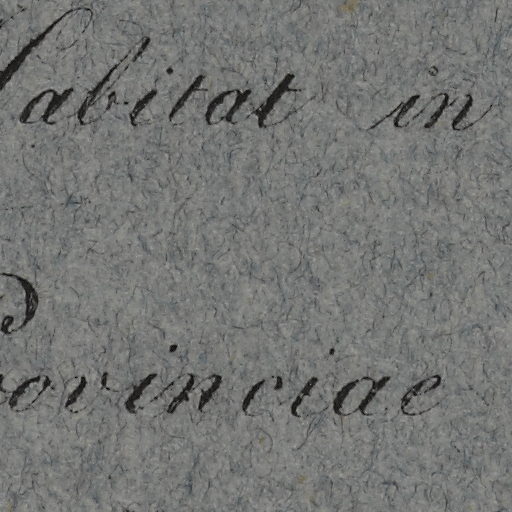 Habitat in
rovinciae